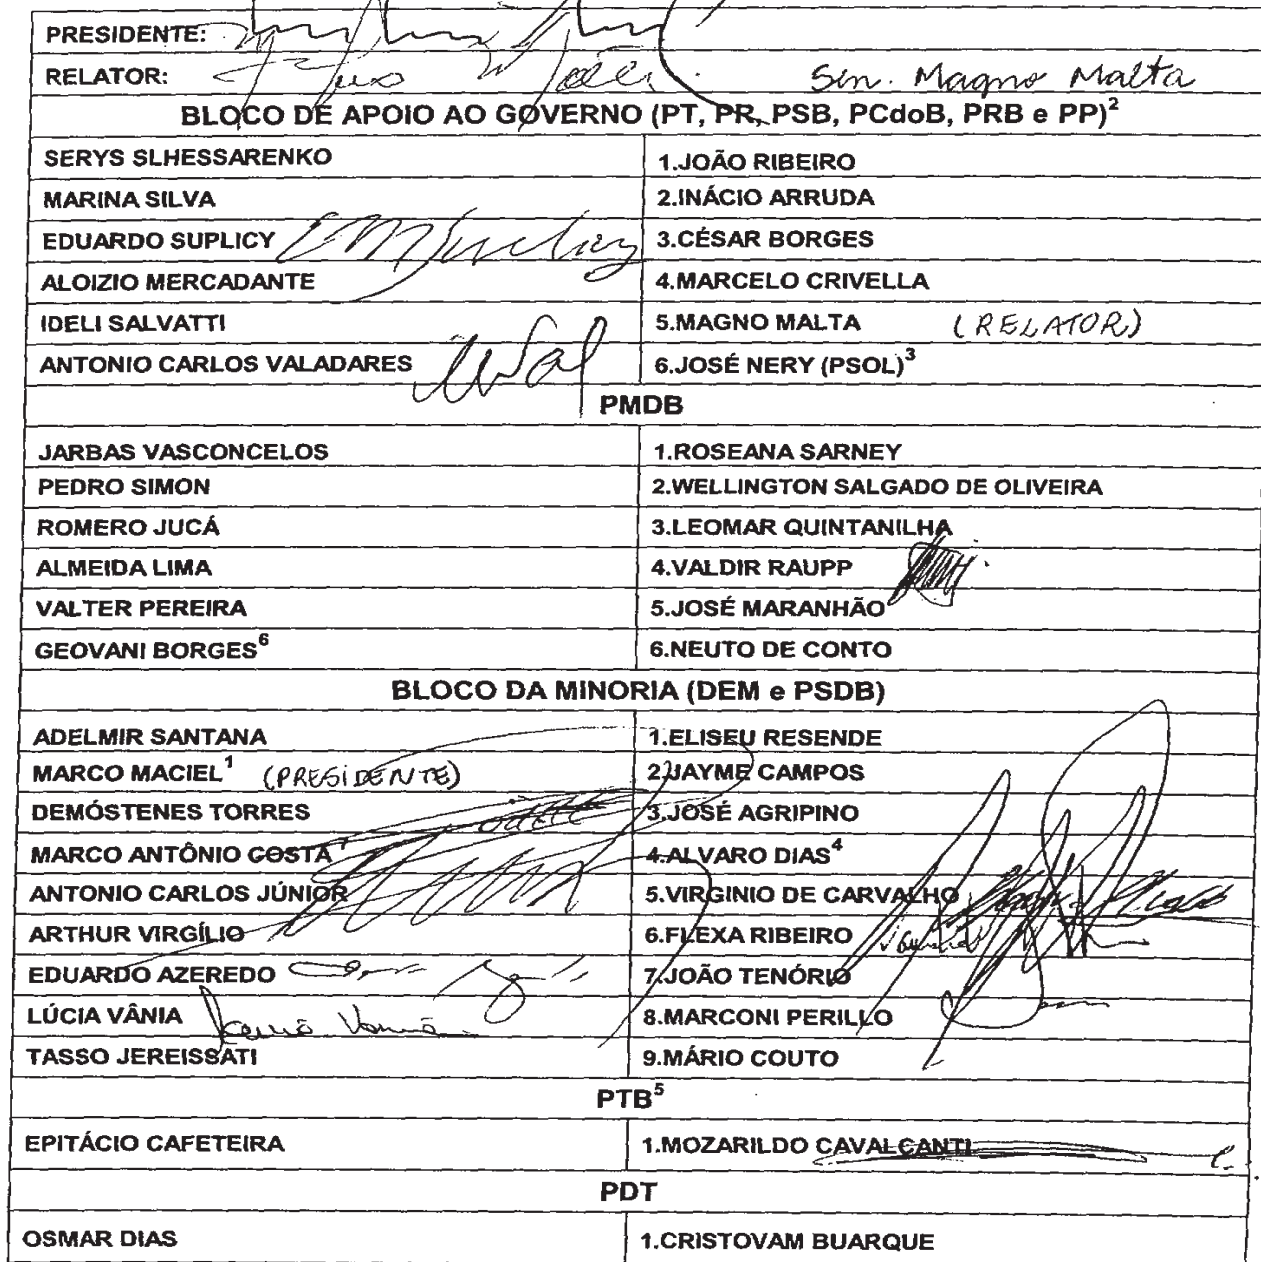 PRESIDENTE:
RELATOR: Sen. Magno Malta
BLOCO DE APOIO AO GOVERNO (PT, PR, PSB, PCdoB, PRB e PP)²
SERYS SLHESSARENKO 1.JOÃO RIBEIRO
MARINA SILVA 2.INÁCIO ARRUDA
EDUARDO SUPLICY 3.CÉSAR BORGES
ALOIZIO MERCADANTE 4.MARCELO CRIVELLA
IDELI SALVATTI 5.MAGNO MALTA (RELATOR)
ANTONIO CARLOS VALADARES 6.JOSÉ NERY (PSOL)³
PMDB
JARBAS VASCONCELOS 1.ROSEANA SARNEY
PEDRO SIMON 2.WELLINGTON SALGADO DE OLIVEIRA
ROMERO JUCÁ 3.LEOMAR QUINTANILHA
ALMEIDA LIMA 4.VALDIR RAUPP
VALTER PEREIRA 5.JOSÉ MARANHÃO
GEOVANI BORGES⁶ 6.NEUTO DE CONTO
BLOCO DA MINORIA (DEM e PSDB)
ADELMIR SANTANA 1.ELISEU RESENDE
MARCO MACIEL¹ (PRESIDENTE) 2.JAYME CAMPOS
DEMÓSTENES TORRES 3.JOSÉ AGRIPINO
MARCO ANTÔNIO COSTA⁷ 4.ALVARO DIAS⁴
ANTONIO CARLOS JÚNIOR 5.VIRGINIO DE CARVALHO
ARTHUR VIRGÍLIO 6.FLEXA RIBEIRO
EDUARDO AZEREDO 7.JOÃO TENÓRIO
LÚCIA VÂNIA 8.MARCONI PERILLO
TASSO JEREISSATI 9.MÁRIO COUTO
PTB⁵
EPITÁCIO CAFETEIRA 1.MOZARILDO CAVALCANTI
PDT
OSMAR DIAS 1.CRISTOVAM BUARQUE